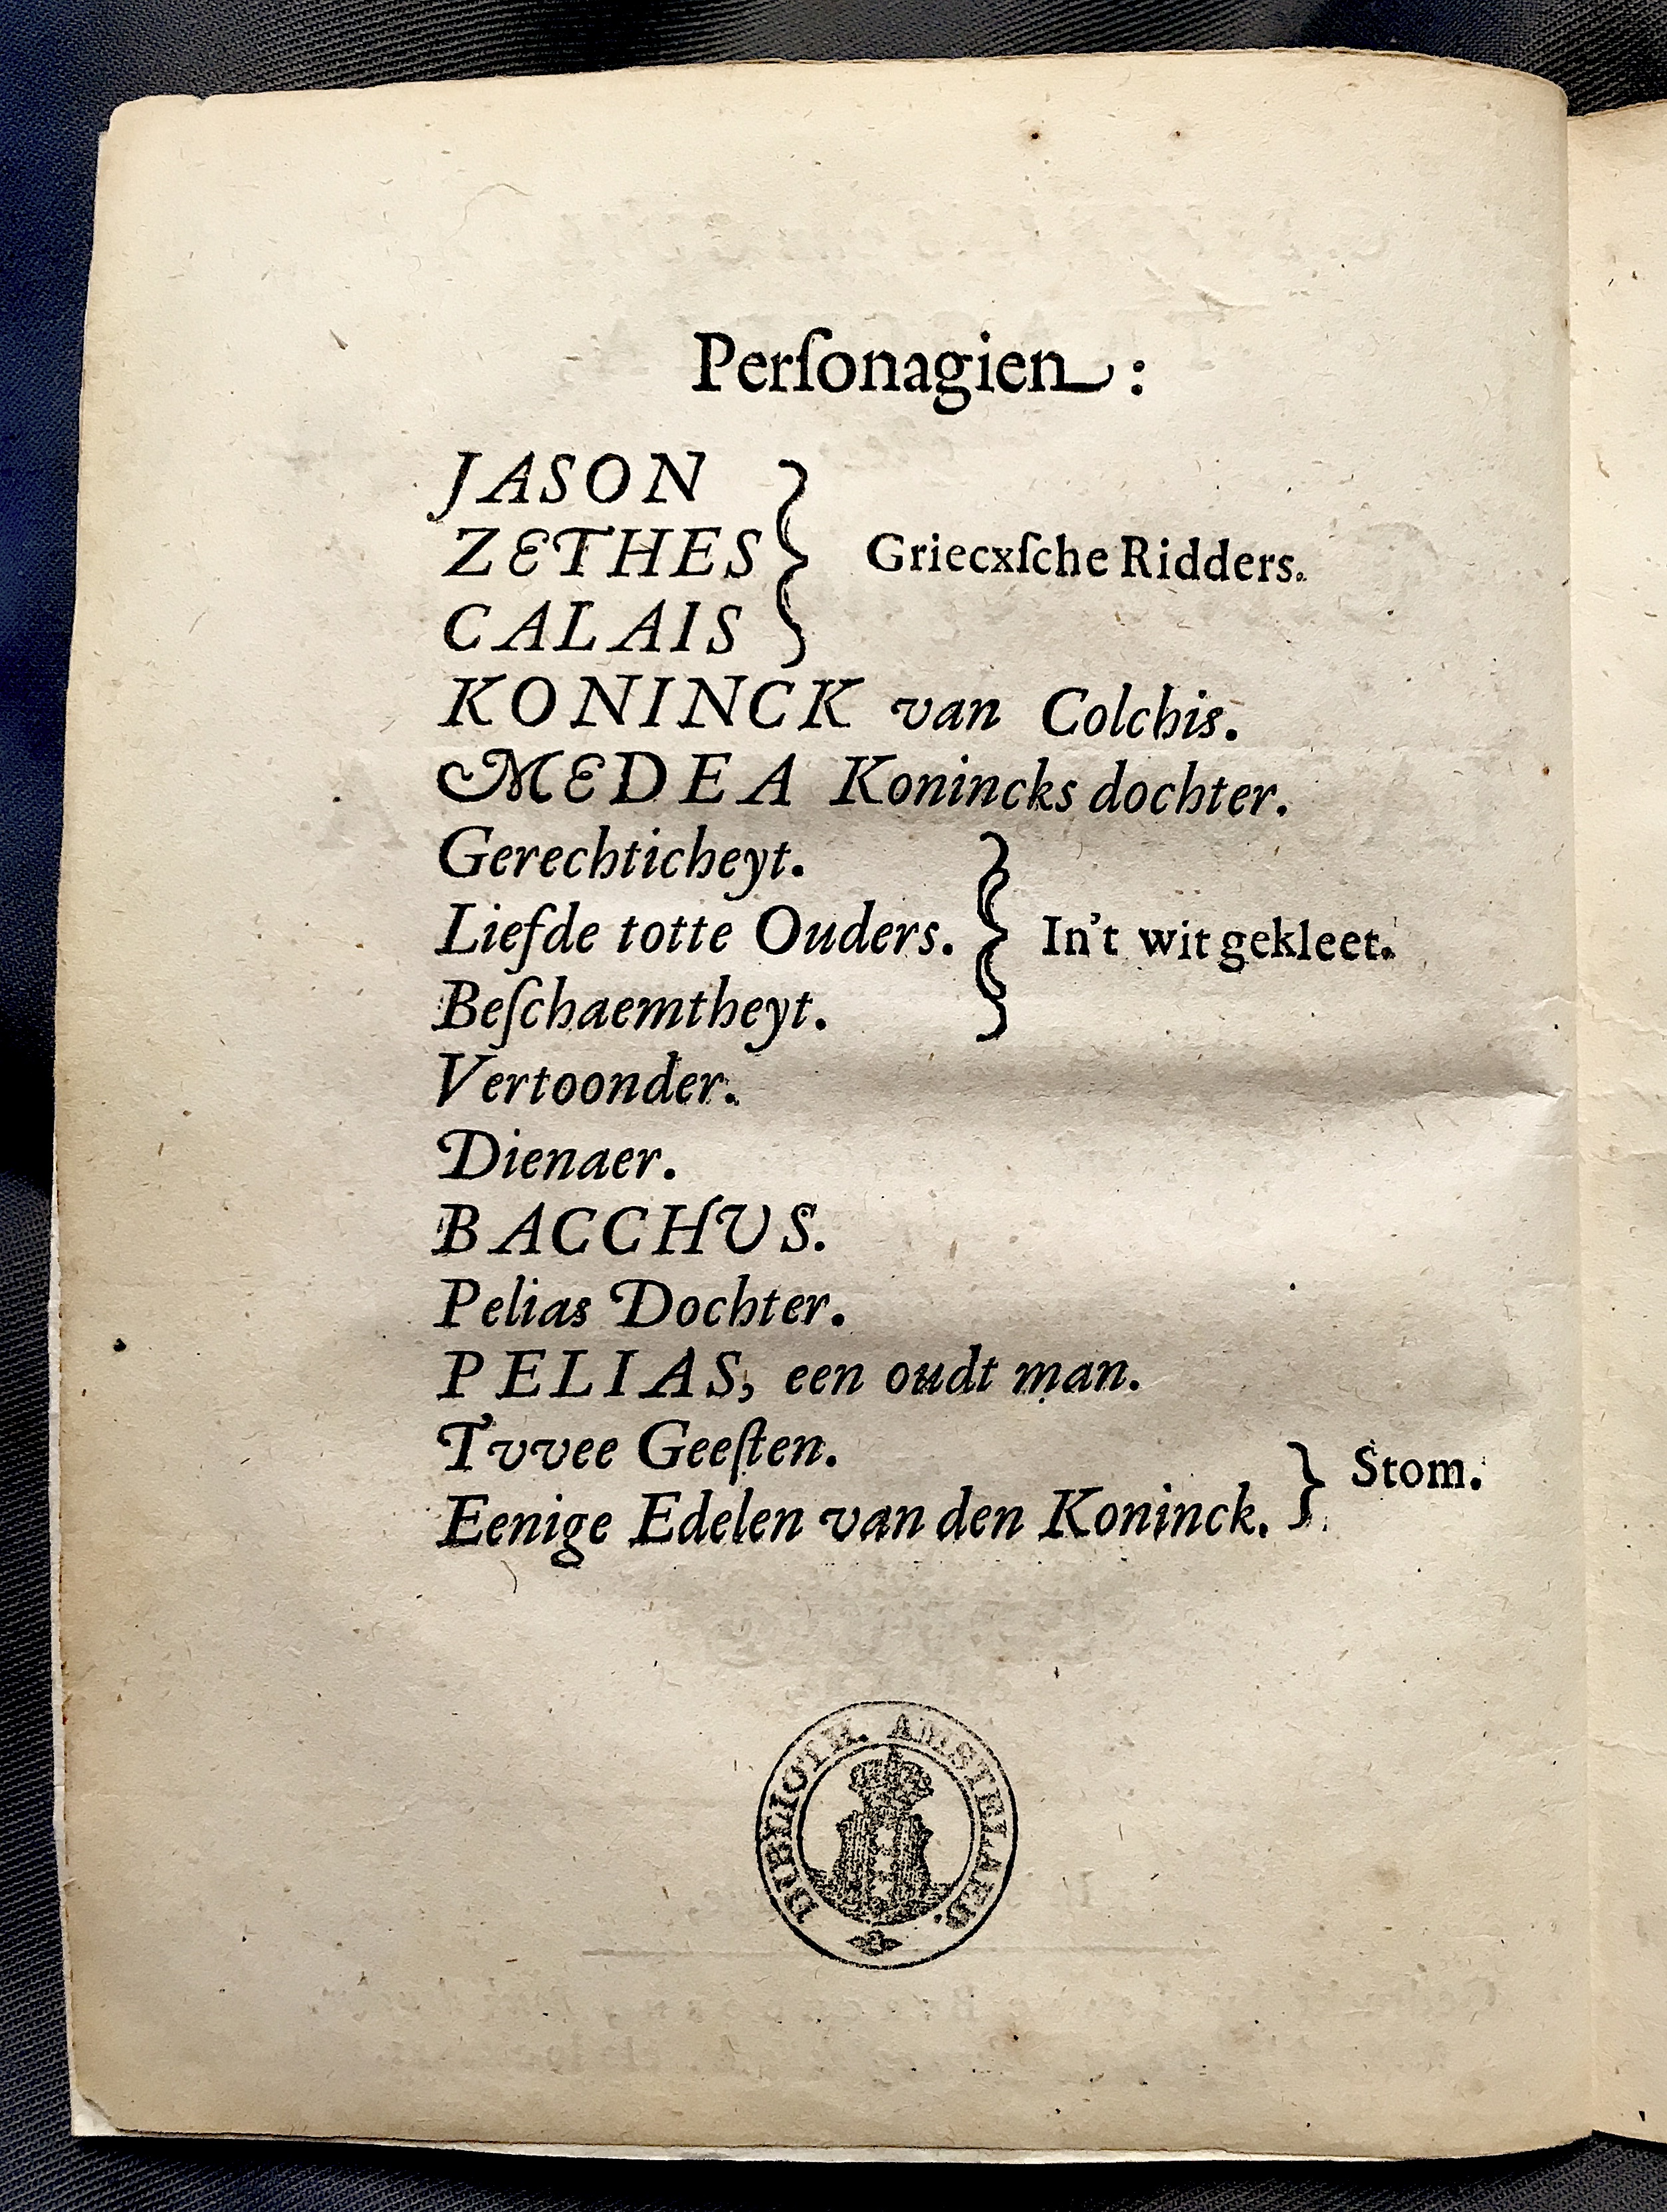 Perſonagien:
JASON
ZETHES
CALAIS
Griecxſche Ridders.
KONINCK van Colchis.
MEDEA Konincks dochter.
Gerechticheyt.
Liefde totte Ouders.
Beſchaemtheyt.
In't wit gekleet.
Vertoonder.
Dienaer.
BACCHUS.
Pelias Dochter.
PELIAS, een oudt man.
Tvvee Geeſten.
Eenige Edelen van den Koninck.
Stom.
BIBLIOTH. AMSTELAED.